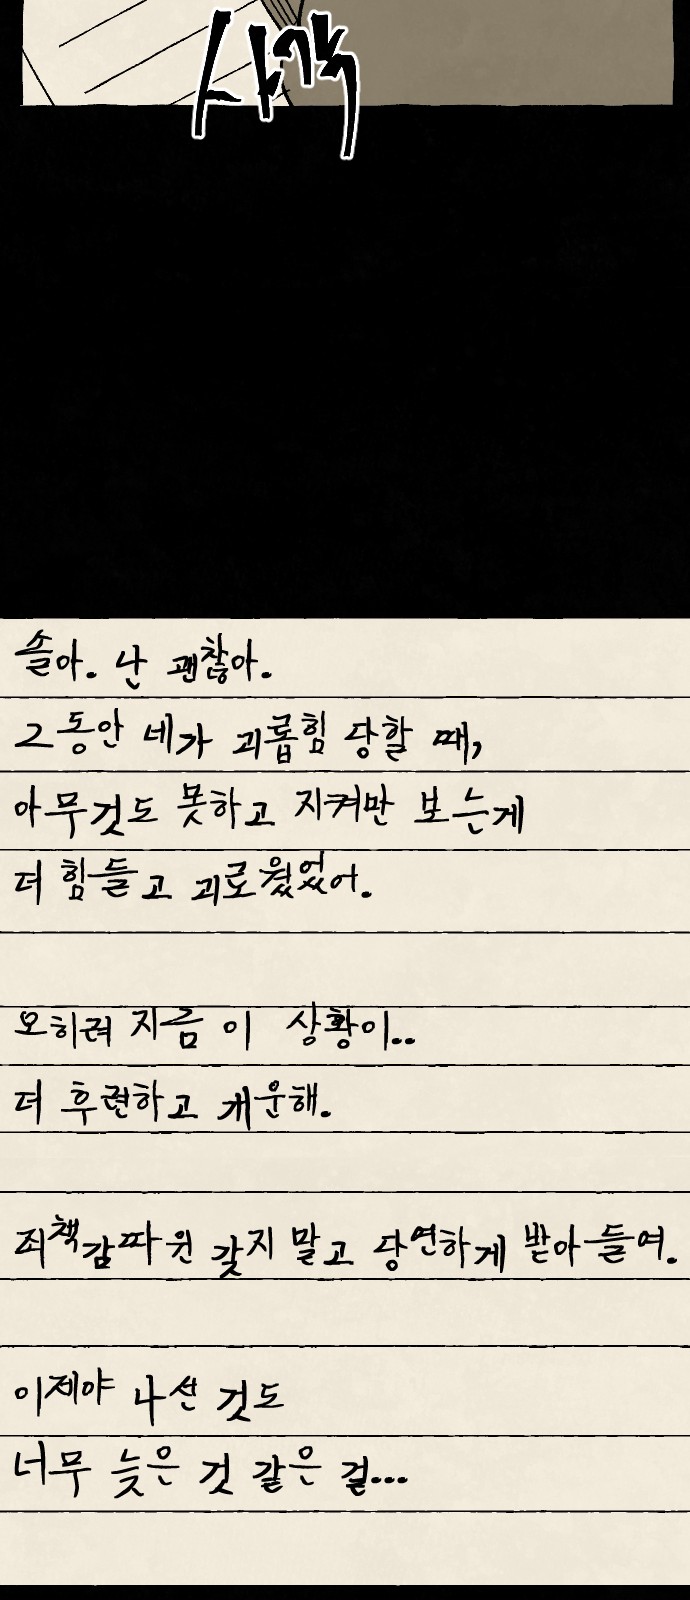 사각
슬아. 난 괜찮아.
그동안 네가 괴롭힘 당할 때,
아무것도 못하고 지켜만 보는게
더 힘들고 괴로웠었어.
오히려 지금 이 상황이..
더 후련하고 개운해.
죄책감따윈 갖지 말고 당연하게 받아들여.
이제야 나선 것도
너무 늦은 것 같은 걸...